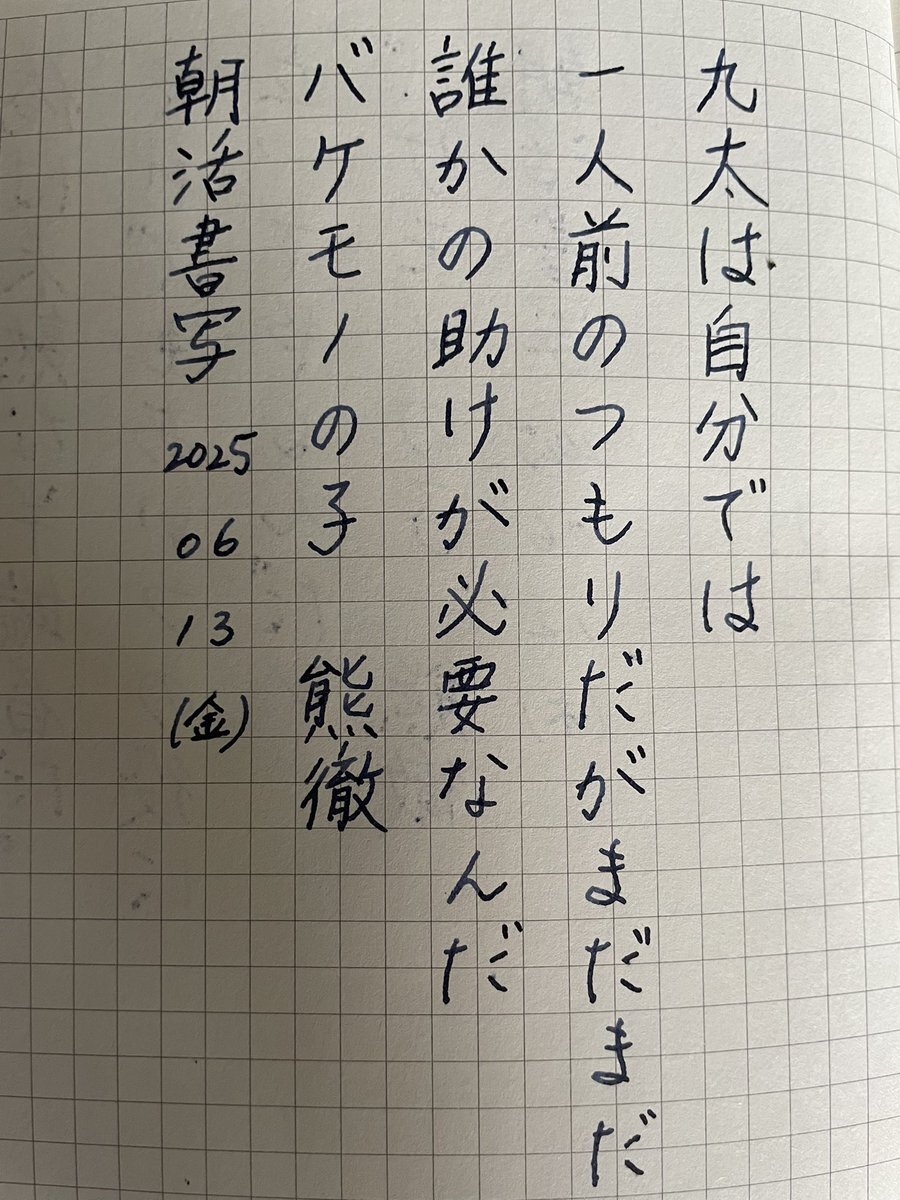 九太は自分では
一人前のつもりだがまだまだ
誰かの助けが必要なんだ
バケモノの子 熊徹
朝活書写 2025 06 13 (金)